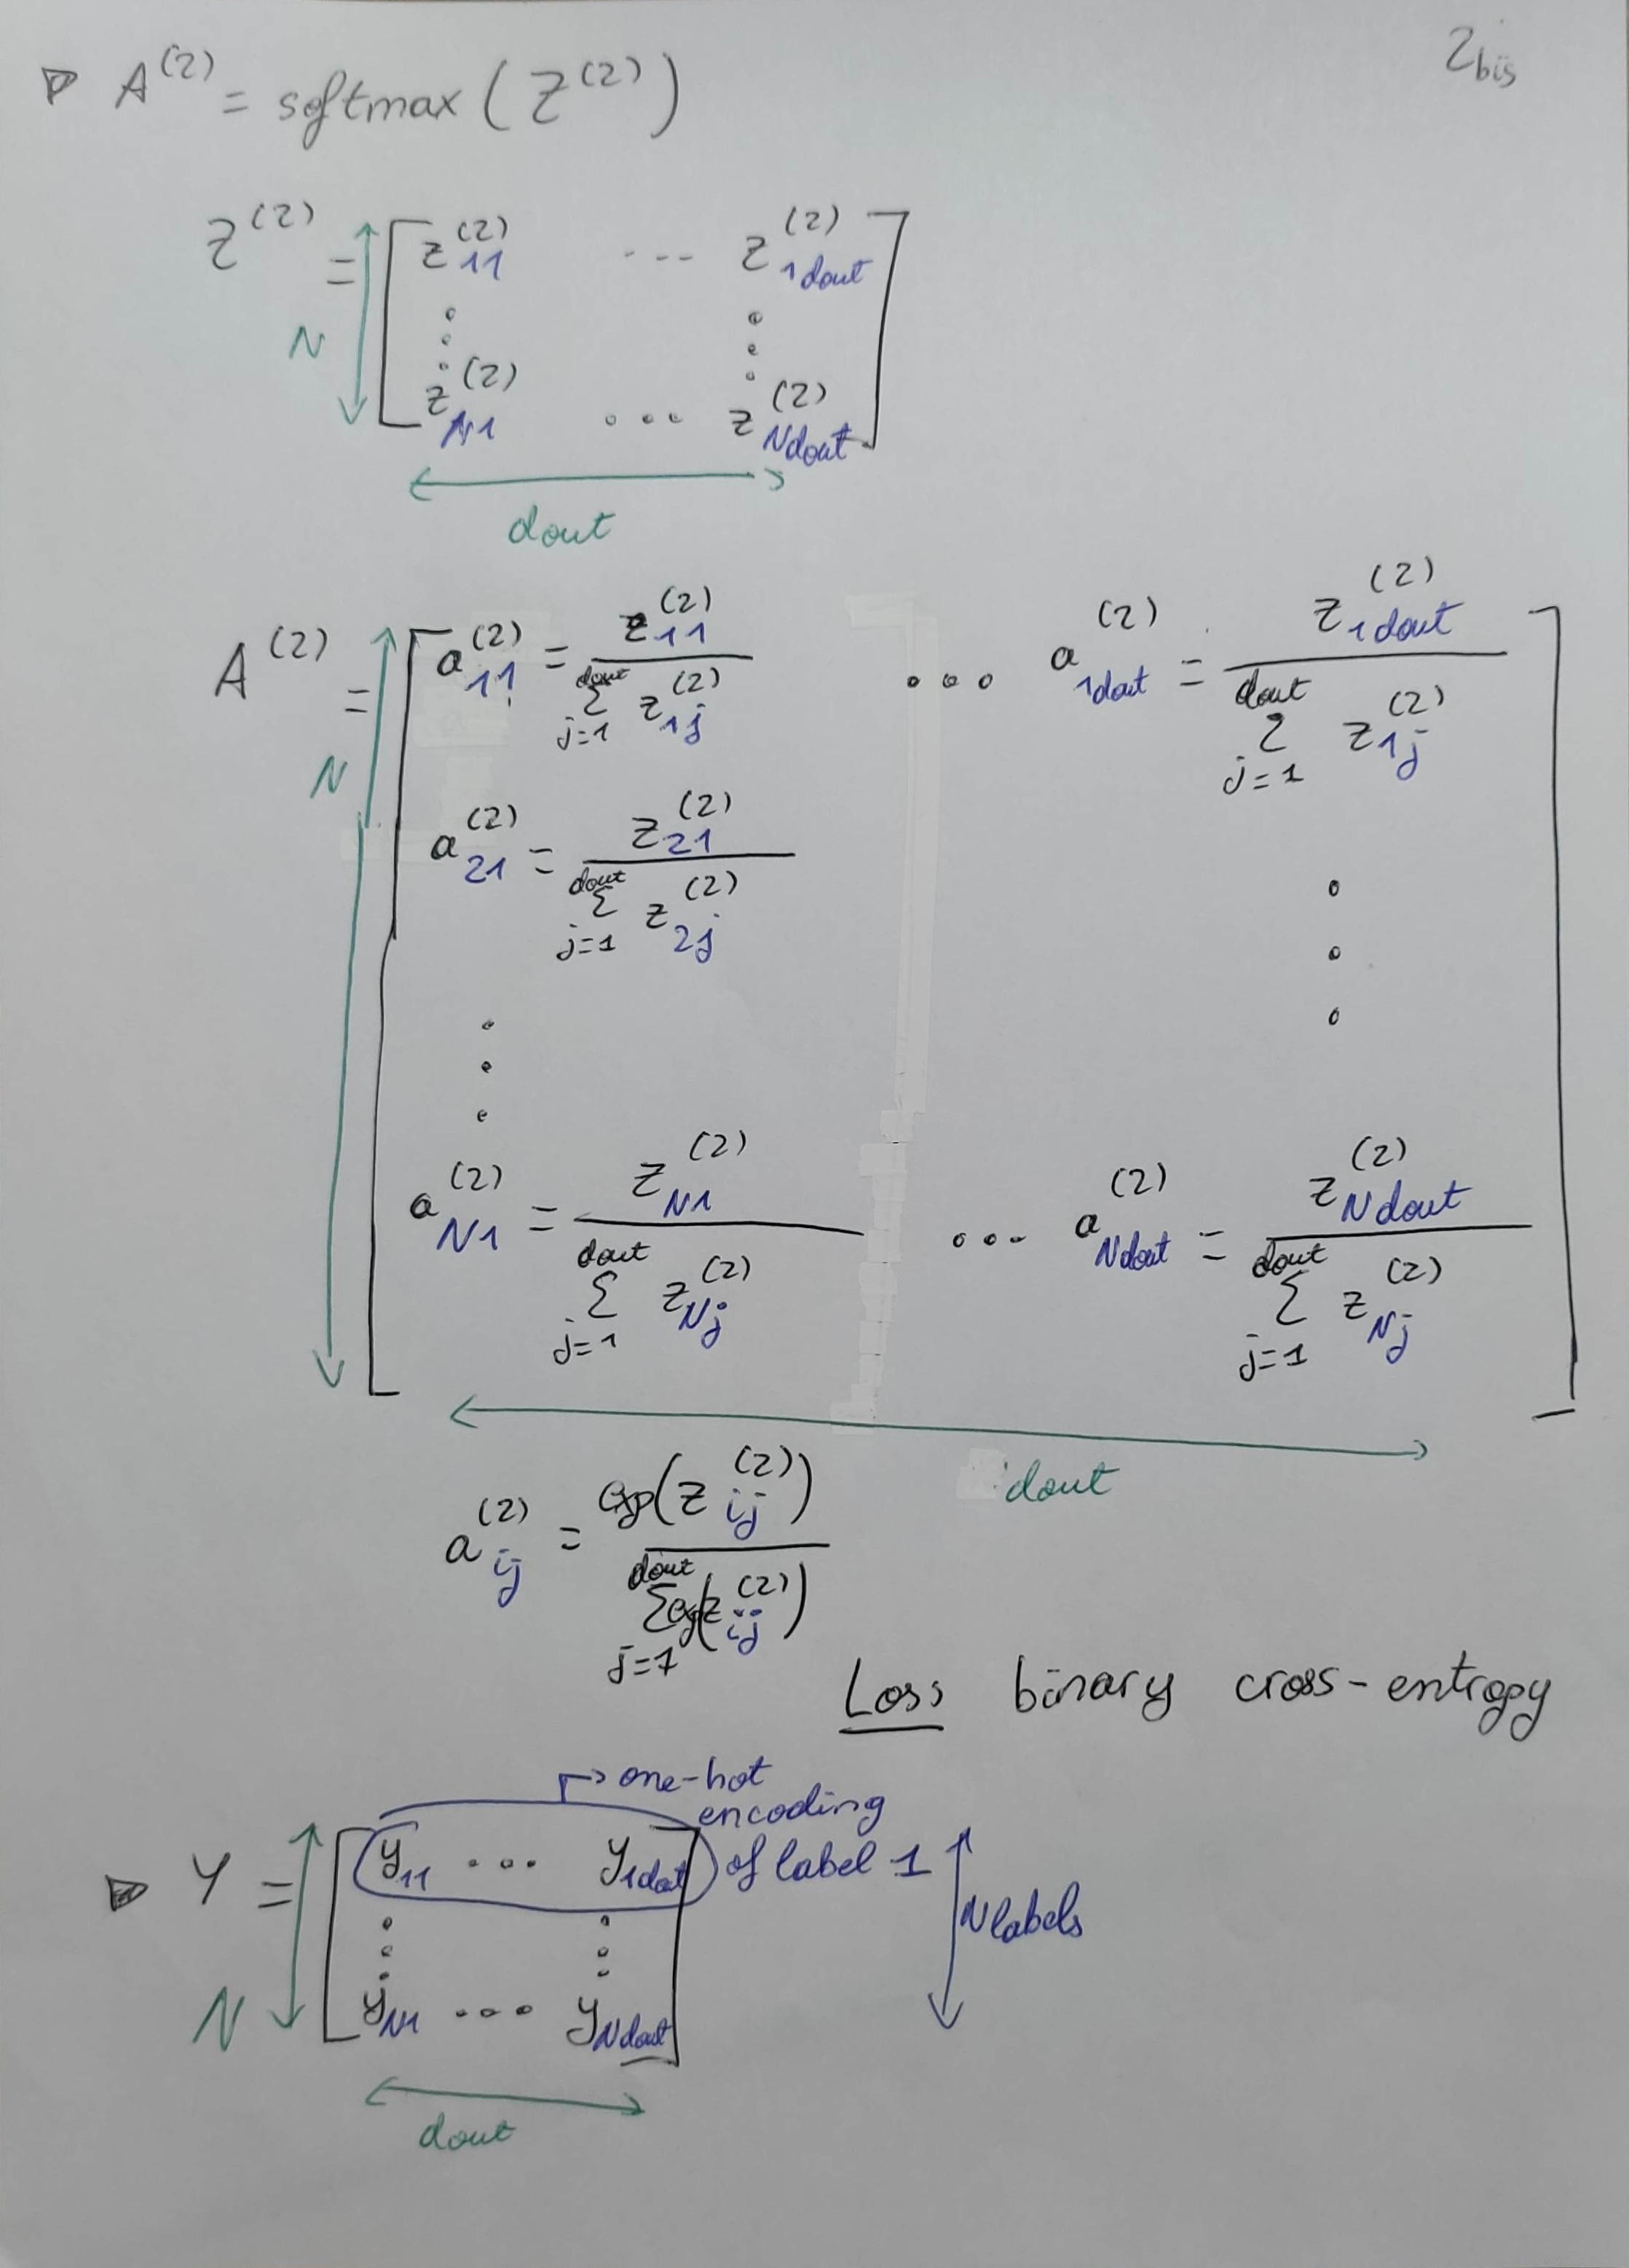 2bis
▷ A^(2) = softmax(Z^(2))
Z^(2) = [ z_11^(2) --- z_1dout^(2)
N
z_N1^(2) ... z_Ndout^(2) ]
dout
A^(2) = [ a_11^(2) = z_11^(2) / Σ_{j=1}^{dout} z_1j^(2) ... a_1dout^(2) = z_1dout^(2) / Σ_{j=1}^{dout} z_1j^(2)
N
a_21^(2) = z_21^(2) / Σ_{j=1}^{dout} z_2j^(2)
a_N1^(2) = z_N1^(2) / Σ_{j=1}^{dout} z_Nj^(2) ... a_Ndout^(2) = z_Ndout^(2) / Σ_{j=1}^{dout} z_Nj^(2) ]
dout
a_ij^(2) = exp(z_ij^(2)) / Σ_{j=1}^{dout} exp(z_ij^(2))
Loss binary cross-entropy
→ one-hot
encoding
▷ Y = [ y_11 ... y_1dout of label 1
N labels
N
y_N1 ... y_Ndout ]
dout